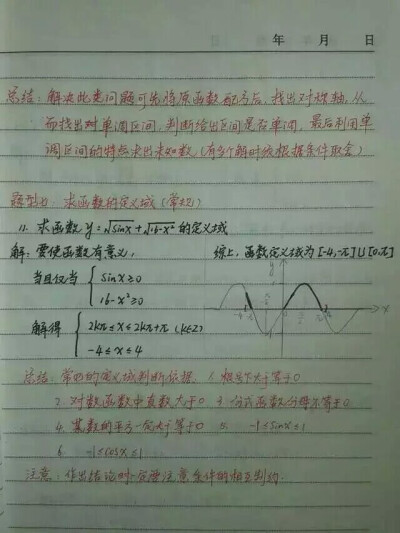 年 月 日
总结：解决此类问题可先将原函数配方后，找出对称轴，从
而找出对单调区间，判断给出区间是否单调，最后利用单
调区间的特点求出未知数（有多个解时须根据条件取舍）
题型七：求函数的定义域（常规）
11. 求函数 y=√sinx+√16-x² 的定义域
解：要使函数有意义， 综上，函数定义域为[-4,-π]∪[0,π]
当且仅当 { sinx≥0
16-x²≥0
解得 { 2kπ≤x≤2kπ+π (k∈Z)
-4≤x≤4
y
x
总结：常用的定义域判断依据 1. 根号下大于等于0
2. 对数函数中真数大于0 3. 分式函数分母不等于0
4. 某数的平方一定大于等于0 5. -1≤sinx≤1
6. -1≤cosx≤1
注意：作出结论时一定要注意条件的相互制约.